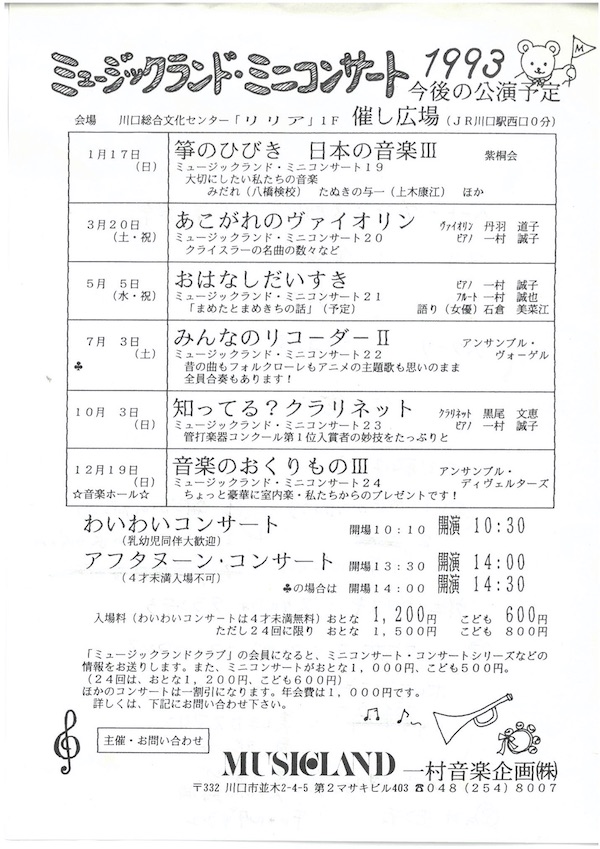 ミュージックランド・ミニコンサート 1993 M
今後の公演予定
会場 川口総合文化センター「リリア」1F 催し広場 (JR川口駅西口0分)
1月17日 箏のひびき 日本の音楽Ⅲ 紫桐会
(日) ミュージックランド・ミニコンサート19
大切にしたい私たちの音楽
みだれ(八橋検校) たぬきの与一(上木康江) ほか
3月20日 あこがれのヴァイオリン ヴァイオリン 丹羽 道子
(土・祝) ミュージックランド・ミニコンサート20 ピアノ 一村 誠子
クライスラーの名曲の数々など
5月 5日 おはなしだいすき ピアノ 一村 誠子
(水・祝) ミュージックランド・ミニコンサート21 フルート 一村 誠也
「まめたとまめきちの話」(予定) 語り(女優)石倉 美菜江
7月 3日 みんなのリコーダーⅡ アンサンブル・
(土) ミュージックランド・ミニコンサート22 ヴォーゲル
♣ 昔の曲もフォルクローレもアニメの主題歌も思いのまま
全員合奏もあります!
10月 3日 知ってる?クラリネット クラリネット 黒尾 文恵
(日) ミュージックランド・ミニコンサート23 ピアノ 一村 誠子
管打楽器コンクール第1位入賞者の妙技をたっぷりと
12月19日 音楽のおくりものⅢ アンサンブル・
(日) ミュージックランド・ミニコンサート24 ディヴェルターズ
☆音楽ホール☆ ちょっと豪華に室内楽・私たちからのプレゼントです!
わいわいコンサート 開場10:10 開演 10:30
(乳幼児同伴大歓迎)
アフタヌーン・コンサート 開場13:30 開演 14:00
(4才未満入場不可) ♣の場合は 開場14:00 開演 14:30
入場料(わいわいコンサートは4才未満無料) おとな 1,200円 こども 600円
ただし24回に限り おとな 1,500円 こども 800円
「ミュージックランドクラブ」の会員になると、ミニコンサート・コンサートシリーズなどの
情報をお送りします。また、ミニコンサートがおとな1,000円、こども500円。
(24回は、おとな1,200円、こども600円)
ほかのコンサートは一割引になります。年会費は1,000円です。
詳しくは、下記にお問い合わせ下さい。
主催・お問い合わせ
MUSICLAND 一村音楽企画㈱
〒332 川口市並木2-4-5 第2マサキビル403 ☎048(254)8007